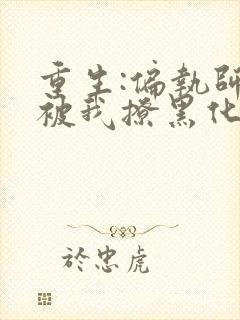 重生:偏執師
被我撩黑化
於忠虎